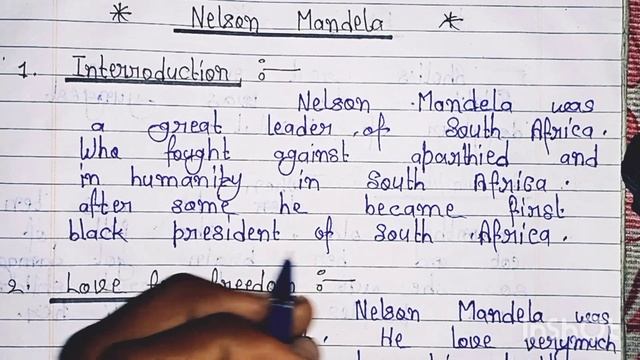 * Nelson Mandela *
1. Interroduction :—
Nelson Mandela was
a great leader of South Africa.
Who fought against aparthied and
in humanity in South Africa.
after some he became first
black president of South Africa.
2. Love for freedom :—
Nelson Mandela was
He love verymuch
InShot